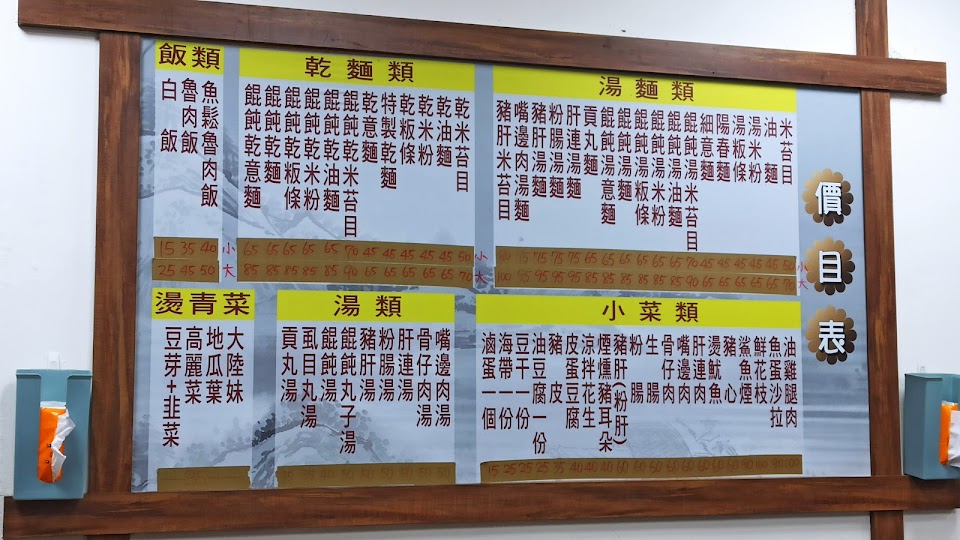 價目表
飯類
白飯
魯肉飯
魚鬆魯肉飯
15 35 40 小
25 45 50 大
乾麵類
餛飩乾意麵
餛飩乾麵
餛飩乾板條
餛飩乾米粉
餛飩乾油麵
餛飩乾米苔目
乾意麵
特製乾麵
乾板條
乾米粉
乾油麵
乾米苔目
65 65 65 65 65 70 45 45 45 45 45 50 小
85 85 85 85 85 90 65 65 65 65 65 70 大
湯麵類
豬肝米苔目
嘴邊肉湯麵
豬肝湯麵
粉腸湯麵
肝連湯麵
貢丸麵
餛飩湯意麵
餛飩湯麵
餛飩湯板條
餛飩湯米粉
餛飩湯油麵
餛飩湯米苔目
細意麵
陽春麵
湯板條
湯米粉
油麵
米苔目
75 75 75 65 65 65 65 65 65 70 45 45 45 45 45 50 小
100 95 95 95 95 85 85 85 85 85 85 90 65 65 65 65 65 70 大
燙青菜
豆芽+韭菜
高麗菜
地瓜葉
大陸妹
湯類
貢丸湯
虱目丸湯
餛飩湯
餛飩丸子湯
豬肝湯
粉腸湯
肝連湯
骨仔肉湯
嘴邊肉湯
小菜類
滷蛋一個
海帶一份
豆干一份
油豆腐一份
豬皮
皮蛋豆腐
涼拌花生
煙燻豬耳朵
豬肝(粉肝)
粉腸
生腸
骨仔肉
嘴邊肉
肝連肉
燙魷魚
豬心
鯊魚煙
鮮花枝
魚蛋沙拉
油雞腿肉
15 25 25 25 35 40 40 40 60